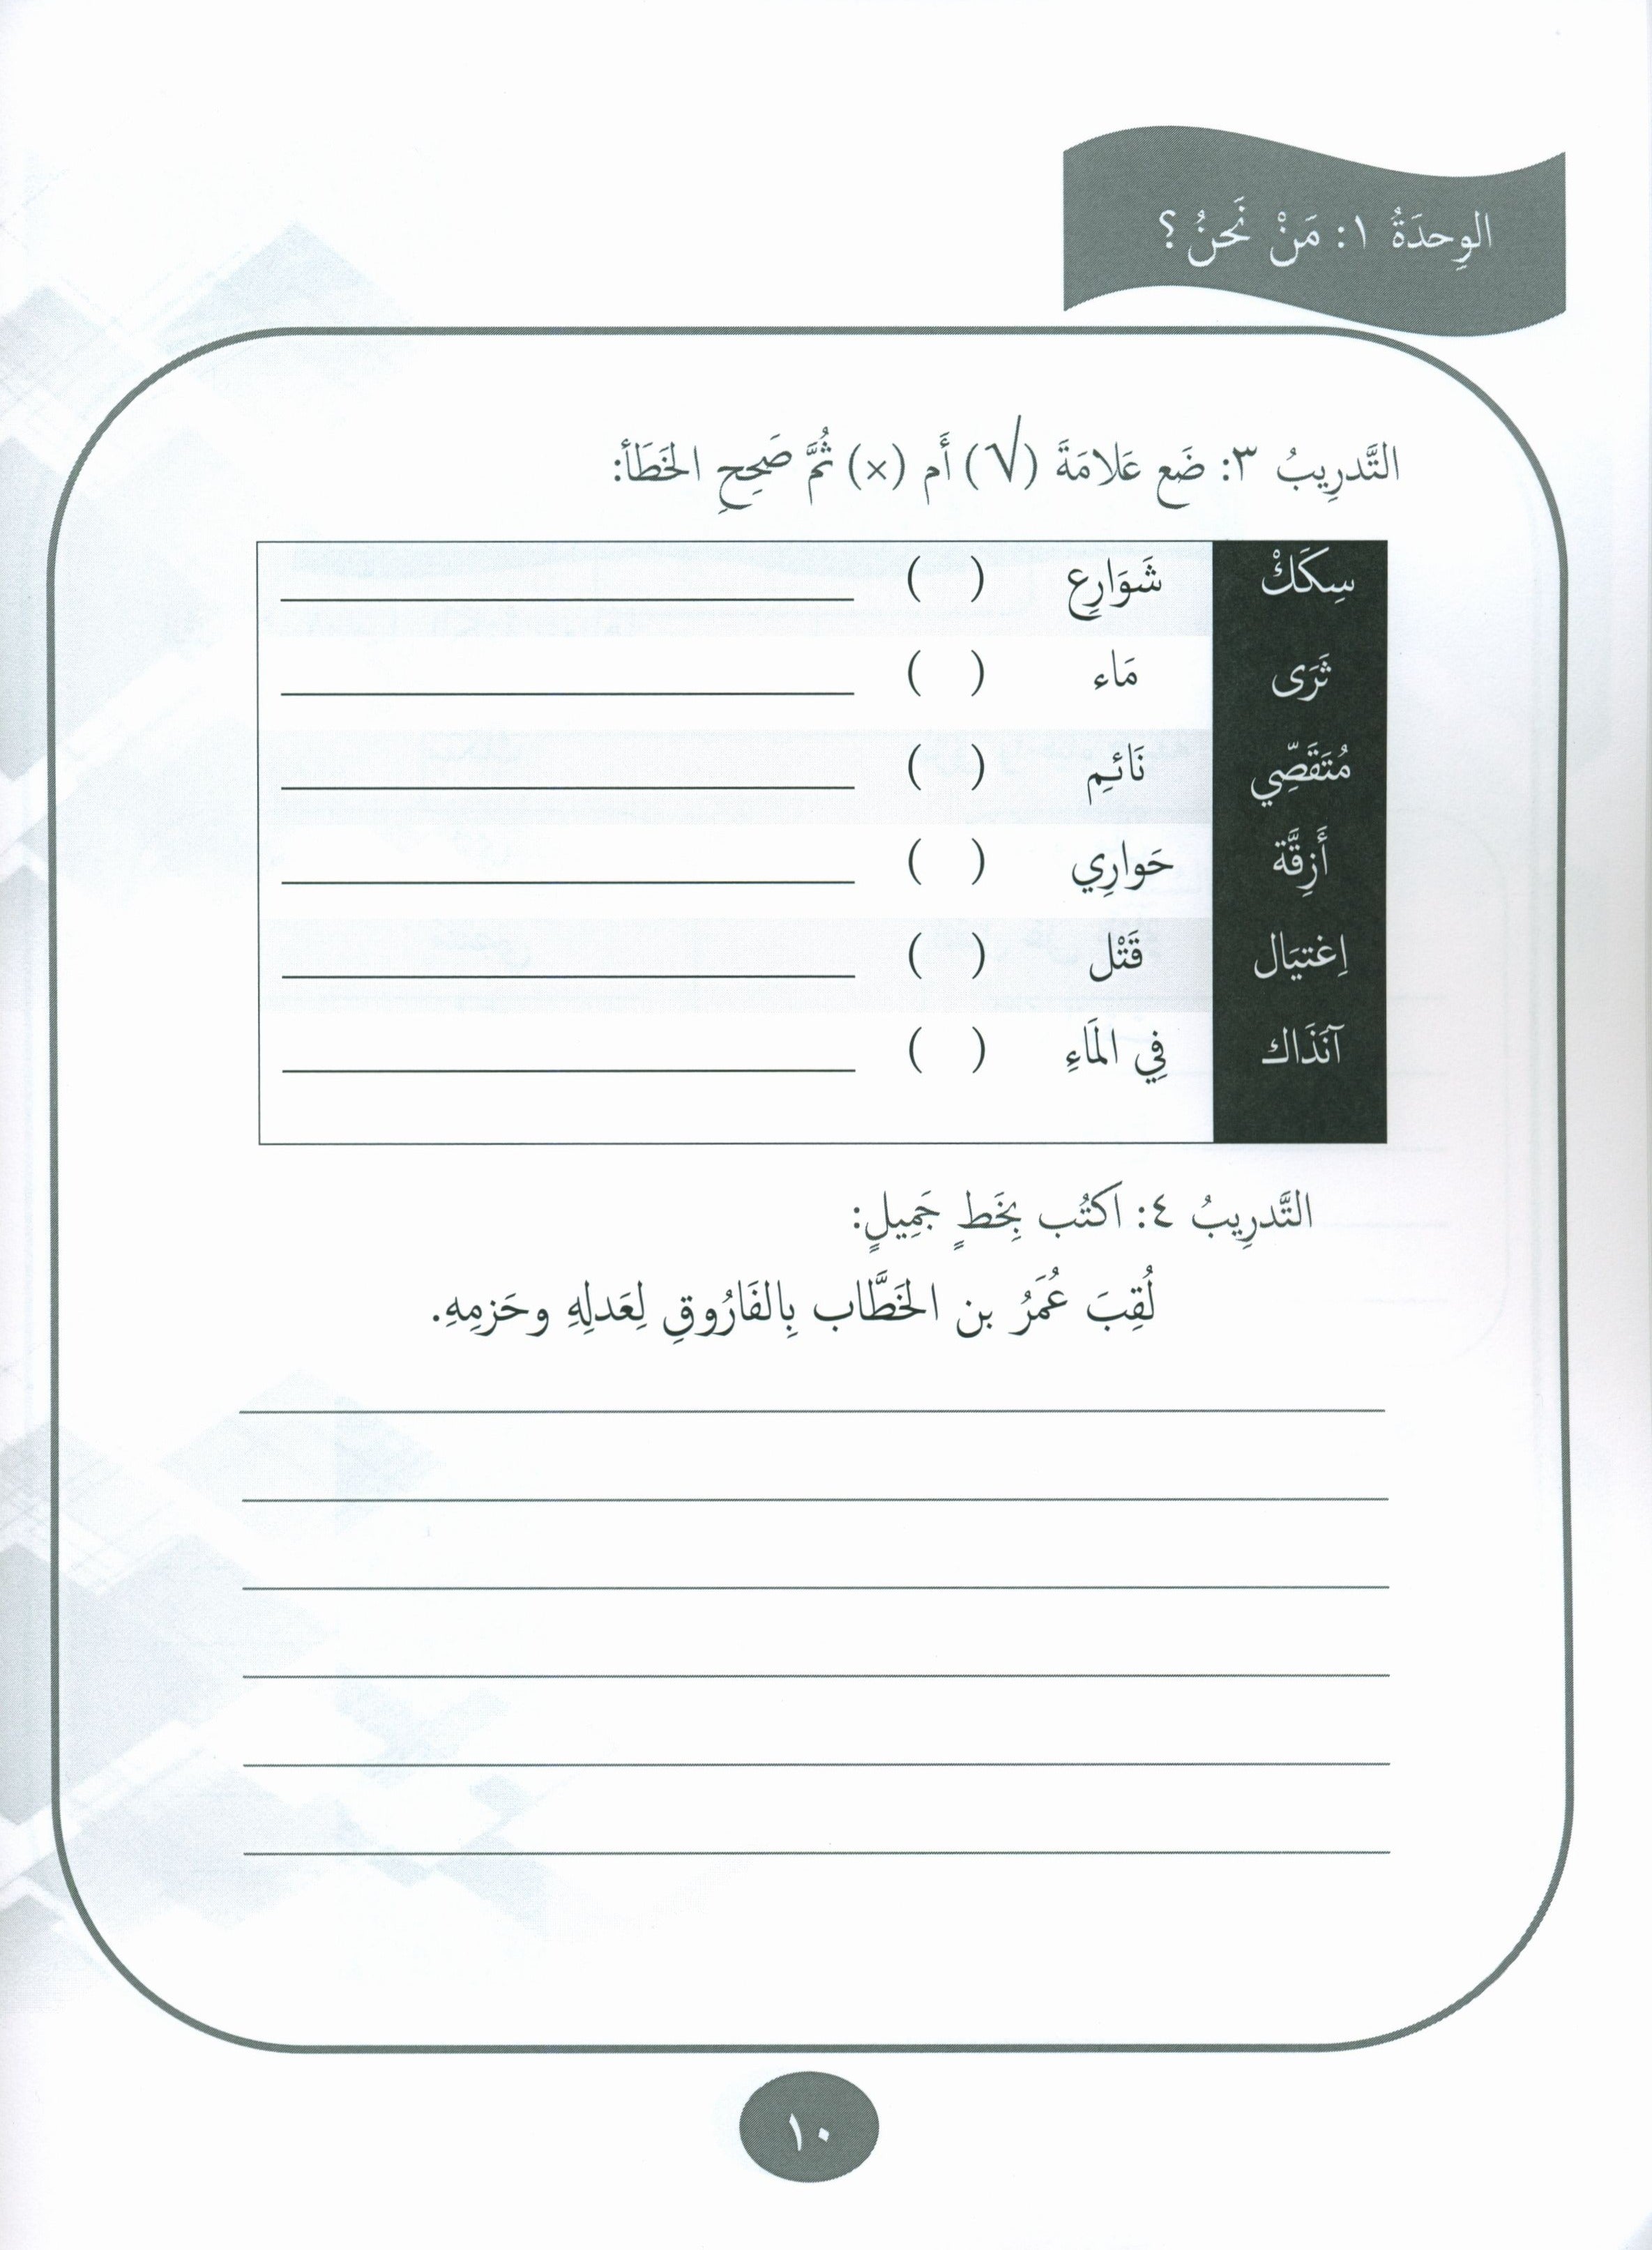 الوِحدَةُ ١: مَنْ نَحنُ؟
التَّدرِيبُ ٣: ضَع عَلامَةَ (√) أَم (×) ثُمَّ صَحِحِ الخَطَأ:
سِكَكْ شَوَارِع ( )
ثَرَى مَاء ( )
مُتَقَصِّي نَائِم ( )
أَزِقَّة حَوارِي ( )
اِغتيَال قَتْل ( )
آنَذَاك فِي المَاءِ ( )
التَّدرِيبُ ٤: اكتُب بِخَطٍ جَمِيلٍ:
لُقِبَ عُمَرُ بن الخَطَّاب بِالفَارُوقِ لِعَدلِهِ وحَزمِهِ.
١٠